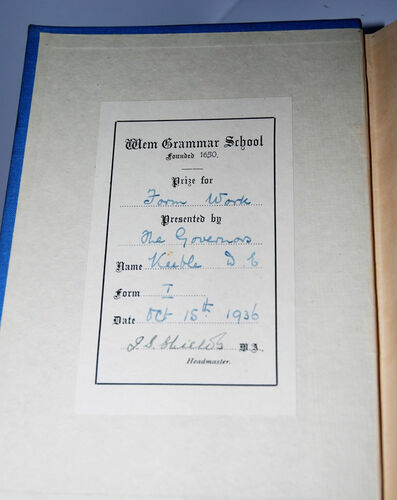 Wem Grammar School
Founded 1650.
Prize for
Form Work
Presented by
The Governors
Name Keeble D. E
Form I
Date Oct 15th 1936
J. S. Shields M.A.
Headmaster.